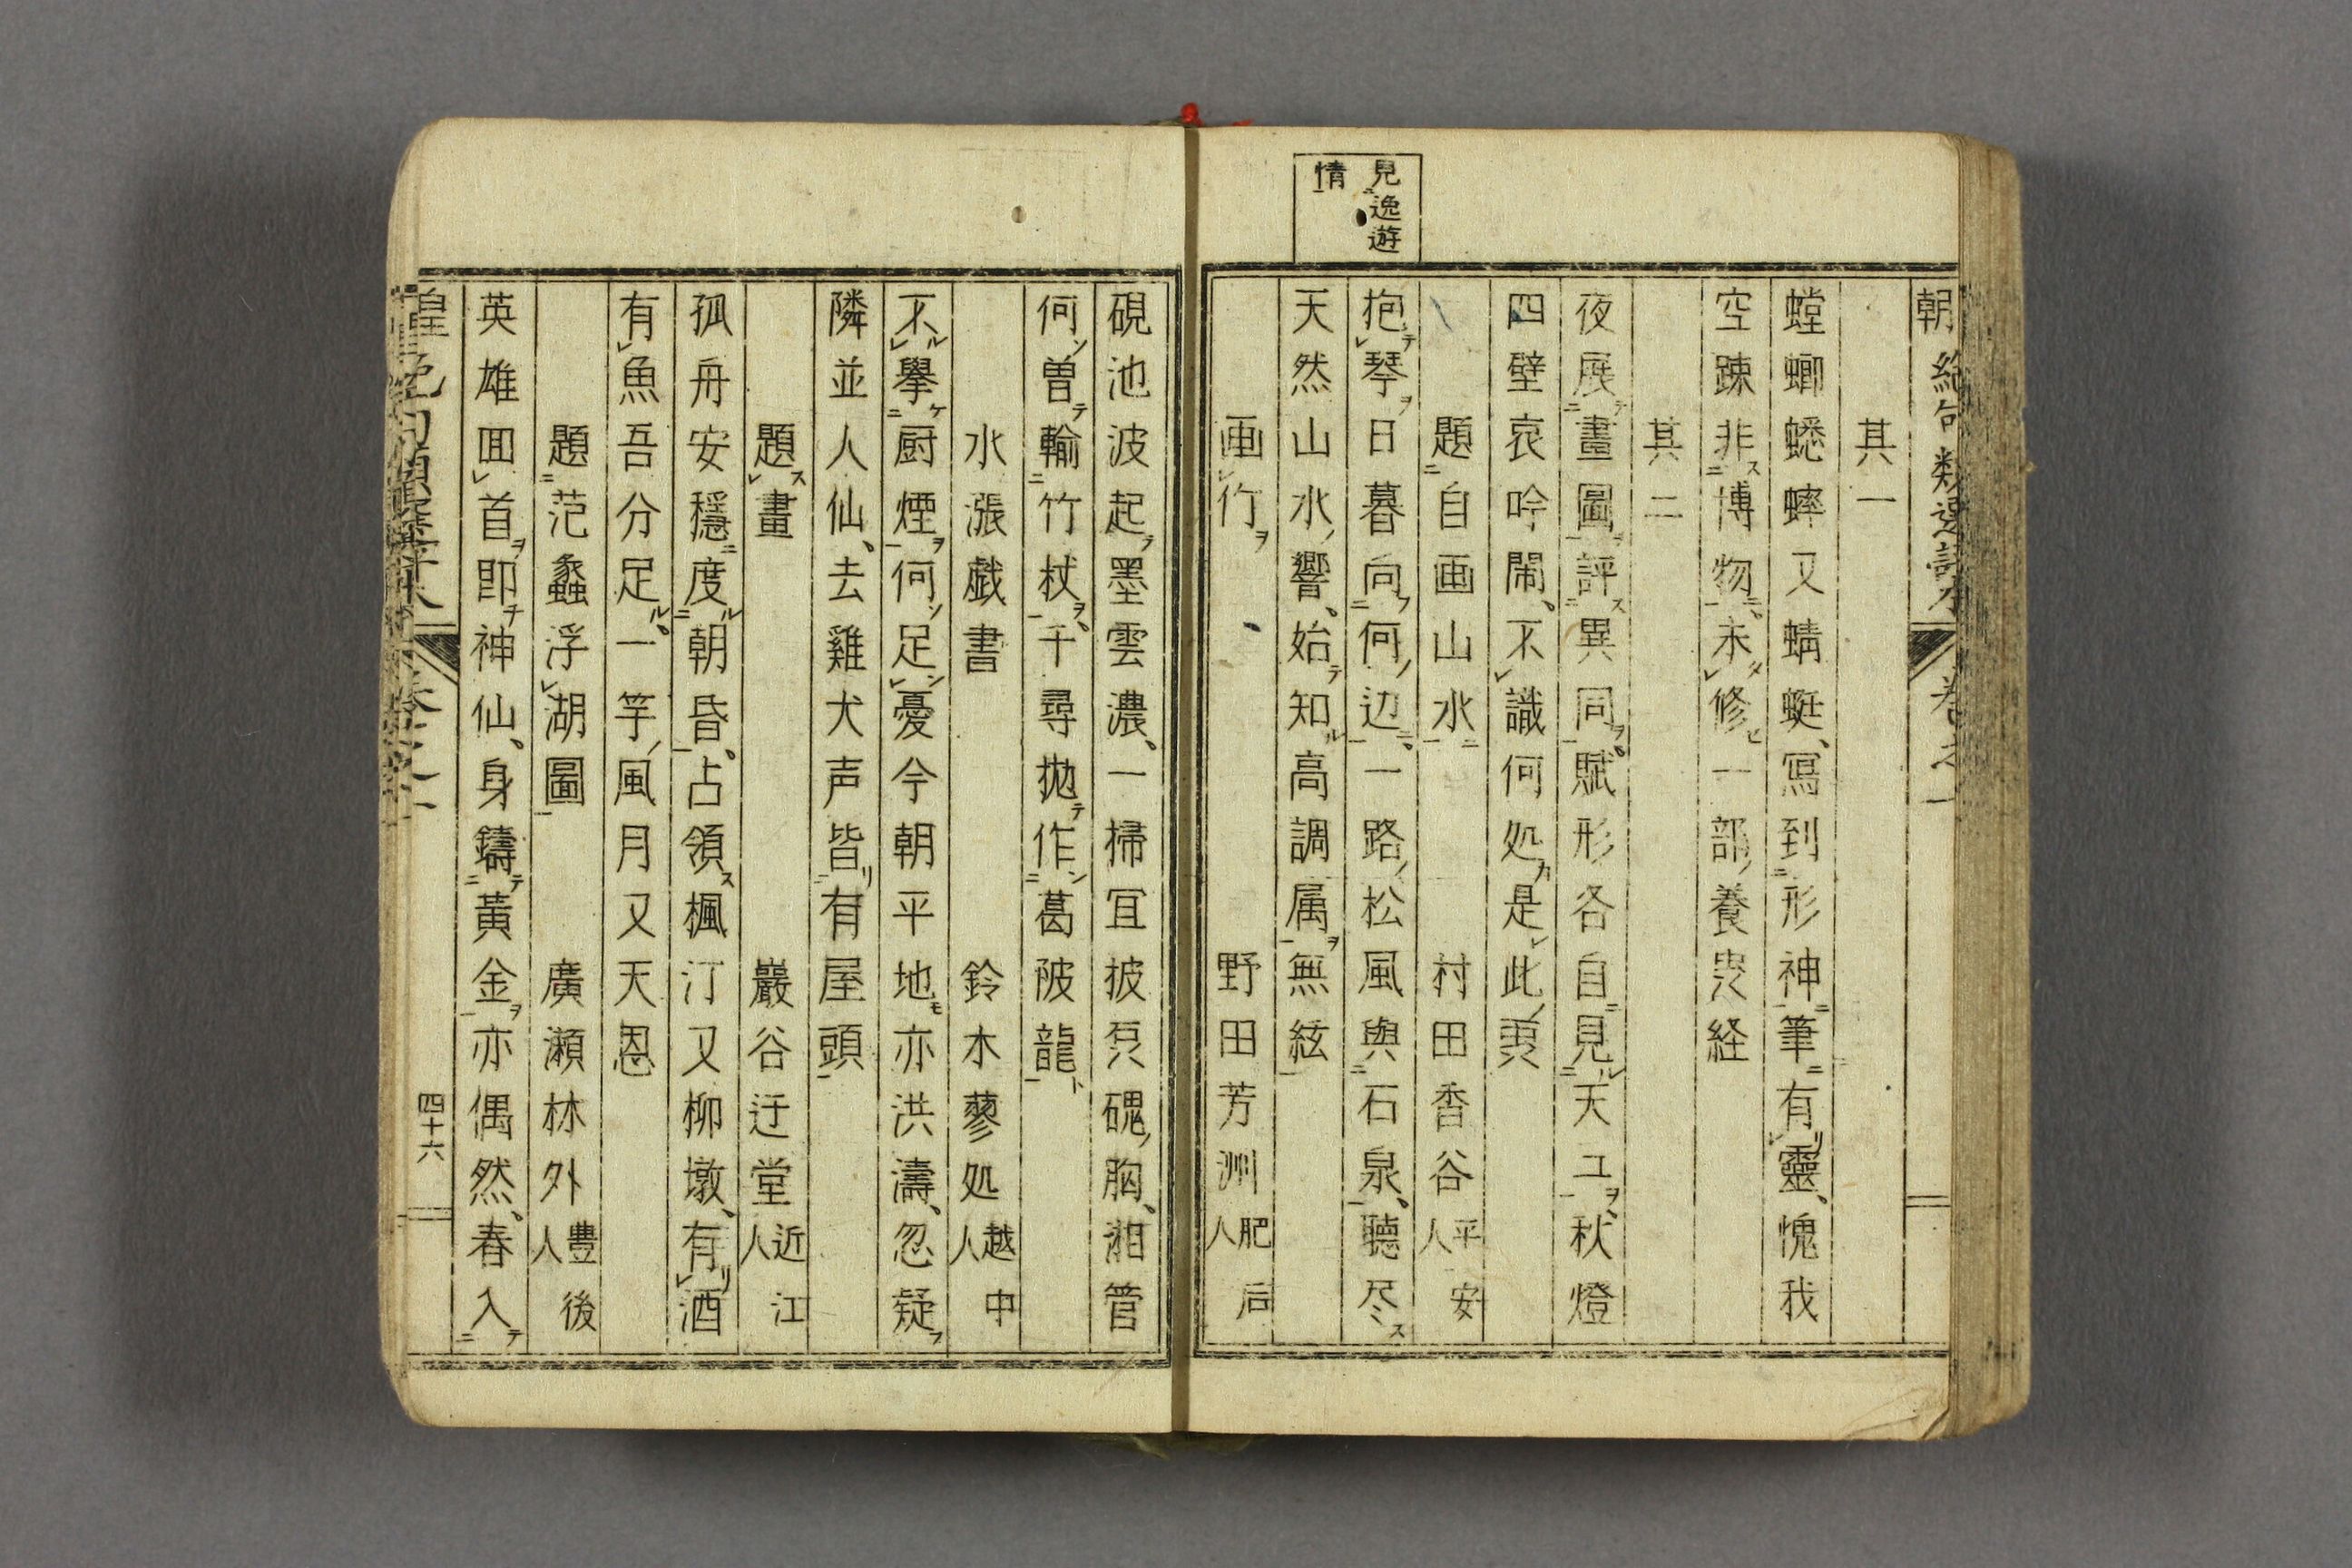 見逸遊
情
朝絶句類選評本 巻之一
其一
螳螂蟋蟀又蜻蜓、寫到形神筆有靈、愧我
空踈非博物、未修一部養虫経
其二
夜展畫圖評異同、賦形各自見天工、秋燈
四壁哀吟閙、不識何処是此䖝
題自画山水 村田香谷平安人
抱琴日暮向何辺、一路松風與石泉、聴尽
天然山水響、始知高調属無絃
画竹 野田芳洲肥后人
硯池波起墨雲濃、一掃冝披磊磈胸、湘管
何曽輸竹杖、千尋拋作葛陂龍
水漲戯書 鈴木蓼処越中人
不擧厨煙何足憂今朝平地亦洪濤、忽疑
隣並人仙去、雞犬声皆有屋頭
題畫 巖谷迂堂近江人
孤舟安穩度朝昏、占領楓汀又柳墩、有酒
有魚吾分足、一竿風月又天恩
題范蠡浮湖圖 廣瀬林外豊後人
英雄囬首即神仙、身鑄黄金亦偶然、春入
四十六